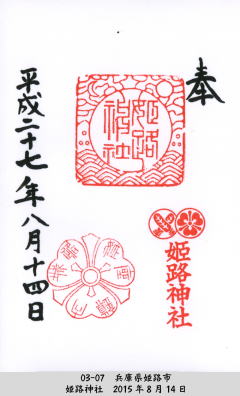 奉
姫路神社
姫路神社
平成二十七年八月十四日
03-07 兵庫県姫路市
姫路神社 2015年8月14日